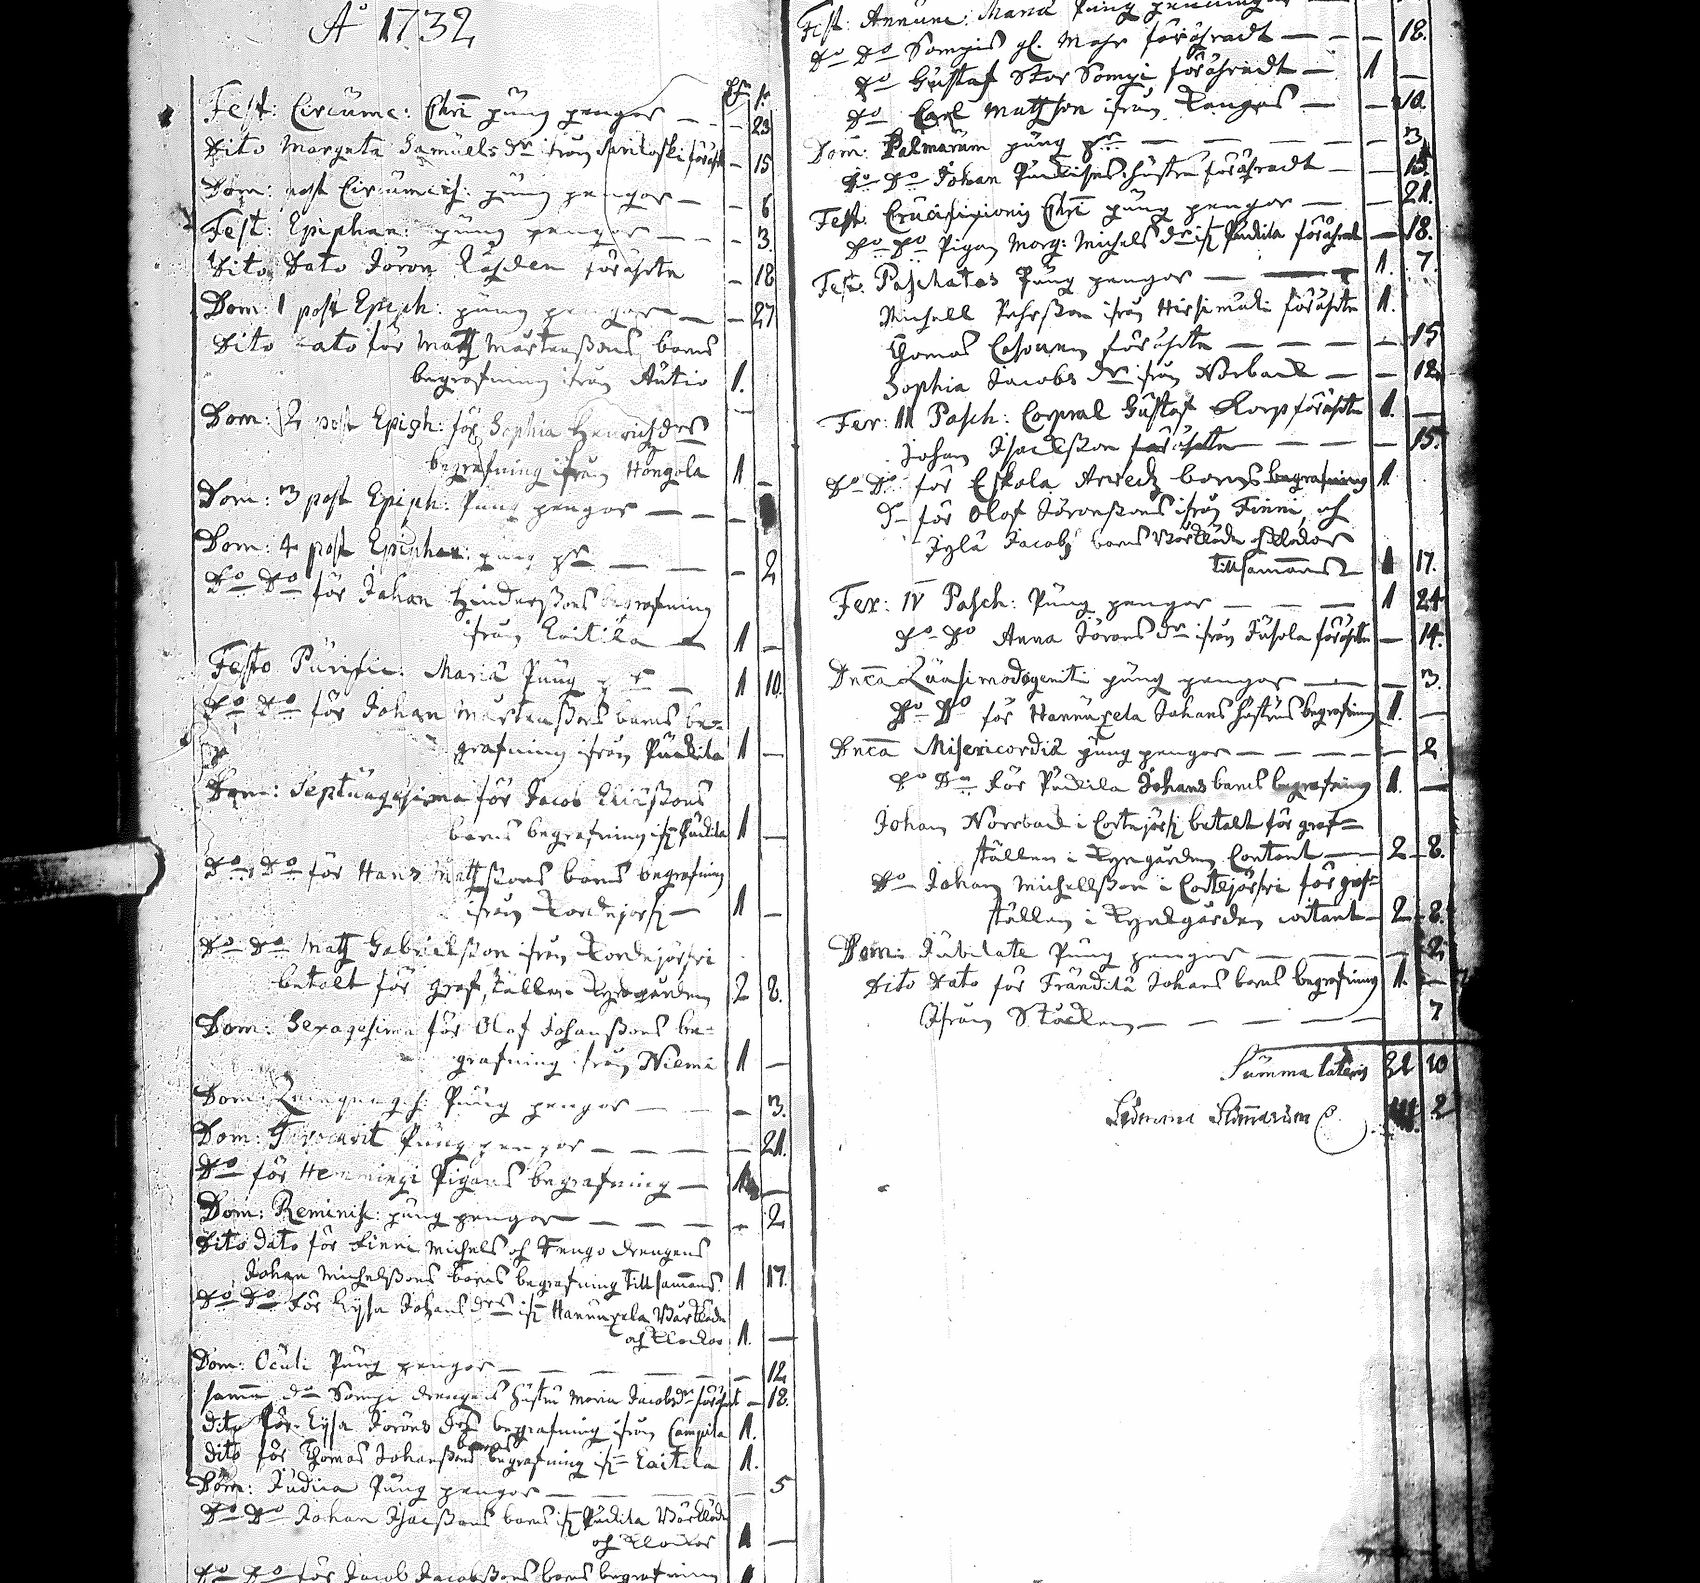 Aº 1732
Fest: Circumc: Chri pung pengar — — 23
Dito Margeta Samuels dr ifrån 15
Dom: post Circumcis: pung pengar — — 6
Fest: Epiphan: pung pengar — — 3.
Dito Dato Jöran förährte — 18
Dom: 1 post Epiph: pung pengar — — 27
Dito Dato för Math Mårtenßons barns
begrafning ifrån Autio 1.
Dom: 2 post Epiph: för Sophia Henrichs drs
begrafning ifrån Höngola 1 —
Dom: 3 post Epiph: Pung pengar — — —
Dom: 4 post Epiphan: pung pr — — — 2
Do Do för Johan Hinderßons begrafning
ifrån Laitila — 1 —
Festo Purific: Mariæ Pung pr — 1 10.
Do Do för Johan Mårtenßons barns be-
grafning ifrån Puukila 1 —
Dom: Septuagesima för Jacob Erichßons
barns begrafning ifr Puukila 1 —
Do Do för Hans Mattsons barns begrafning
ifrån Kordejerfi — 1 —
Do Do Math Gabrielßon ifrån Kordejerfvi
betalt för graf, ställe i Kyrkogården 2 8.
Dom: Sexagesima för Olof Johanßons be-
grafning ifrån Niemi 1 —
Dom: Quinquages: Pung pengar — — — 3.
Dom: Invocavit Pung pengar — — — — 21.
Do för Hemmingi Pigans begrafning — 1 —
Dom: Reminisc: pung pengar — — — — 2
Dito Dato för Finni Michels och Kengo drengens
Johan Michelßons barns begrafning tillsammans 1 17.
Do Do för Lysa Johans drs ifr Hannuxela Vårkläde
och Klockor 1. —
Dom: Oculi Pung pengar — — — — 12
samma do Sompi drengens hustru Maria Jacobs dr — 18.
dito för Lysa Jörans drs begrafning ifrån Lampila 1.
dito för Thomas Johanßons barns begrafning ifr Laitila 1.
Dom: Judica Pung pengar — — — 5
Do Do Johan Isacßons barns ifr Puukila Vårkläde
och Klockor 1 —
Do Do för Jacob Jacobßons barns begrafning 1
Fest: Annunc: Mariæ Pung pengar —
Do Do Sompis gl. Mohr förähradt — — — 18.
Do Gustaf Stor Sompi förähradt — 1 —
Do Carl Mathson ifrån Kangas — — 10.
Dom: Palmarum pung pr — — — — 3
Do Do Johan hustru förähradt — — 15.
Fest: Crucifixionis Chri pung pengar — — 21.
Do Do Pigan Marg: Michels dr ifr Puukila förährat — 18.
Fest: Paschatos Pung pengar — — 1. 7.
Michell Pehrßon ifrån Hirsimäki förährte 1.
Thomas förährte — — — — 15
Sophia Jacobs dr ifrån Norback — — 12
Fer: III Pasch: Corpral Gustaf Korp förährte 1. —
Johan Isackßon förährte — — — 15.
Do Do för Eskola barns begrafning 1.
Do för Olof Jöranßons ifrån Finni, och
Jylä Jacobs barns Vårkläde och Klockor
tillsammans 1 17.
Fer: IV Pasch: Pung pengar — — — 1 24
Do Do Anna Jörans dr ifrån Jusola förährte — 14.
Dnca Quasimodogeniti pung pengar — — — 3.
Do Do för Hannuxela Johans hustrus begrafning 1. —
Dnca Misericordiæ pung pengar — — — — — 2
Do Do för Puukila Johans barns begrafning 1. —
Johan Norrback i Cortejärfi betalt för graf-
ställen i Kyrgården Contant — 2 8.
Do Johan Michellßon i Cortejärfvi för graf-
ställen i Kyrkgården contant — 2 8.
Dom: Jubilate Pung pengar — — — — 2.
Dito Dato för Frändilä Johans barns begrafning 1. —
Ifrån Stocken — — — — — 7
Summa lateris 21 10
Summa Summarum 2